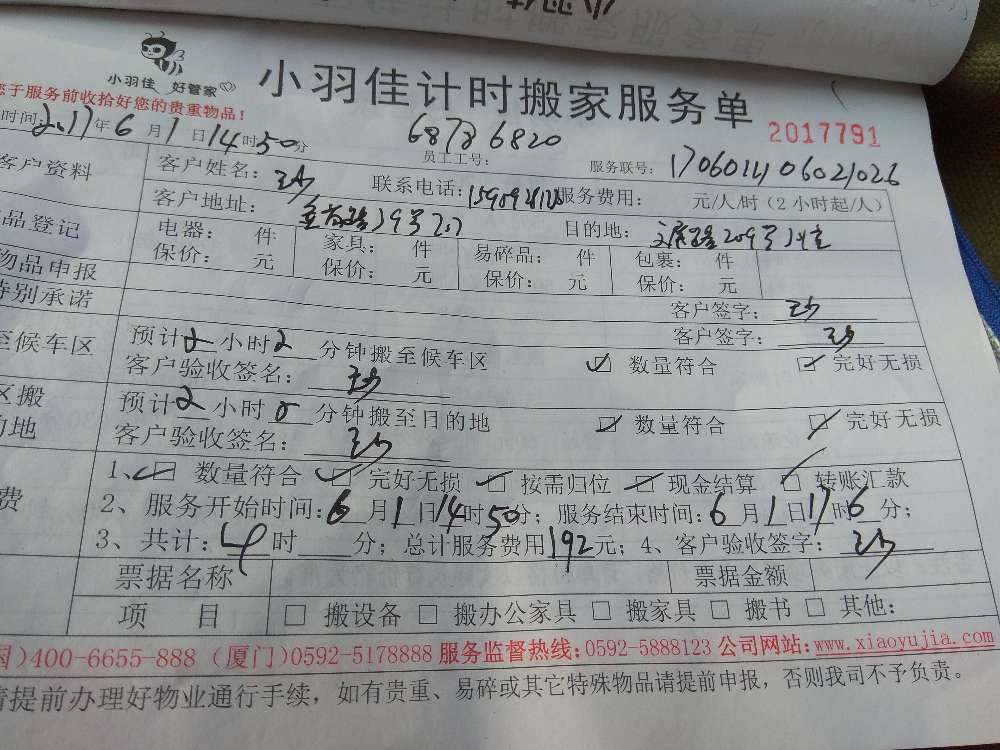 小羽佳 好管家
小羽佳计时搬家服务单
您于服务前收拾好您的贵重物品!
2017791
时间:2017年6月1日14时50分
68736820
员工工号:
服务联号:
客户资料
客户姓名:
联系电话:
服务费用: 元/人/时(2小时起/人)
客户地址:
目的地:
品登记
电器: 件
家具: 件
易碎品: 件
包裹: 件
物品申报
保价: 元
保价: 元
保价: 元
保价: 元
特别承诺
客户签字:
客户签字:
至候车区
预计2小时2分钟搬至候车区
数量符合
完好无损
客户验收签名:
区搬
的地
预计2小时0分钟搬至目的地
数量符合
完好无损
客户验收签名:
费
1、数量符合 完好无损 按需归位 现金结算 转账汇款
2、服务开始时间:6月1日14时50分;服务结束时间:6月1日17时6分;
3、共计:4时 分;总计服务费用192元;4、客户验收签字:
票据名称
票据金额
项 目
□ 搬设备 □ 搬办公家具 □ 搬家具 □ 搬书 □ 其他:
国)400-6655-888 (厦门)0592-5178888 服务监督热线:0592-5888123 公司网站:www.xiaoyujia.com
请提前办理好物业通行手续,如有贵重、易碎或其它特殊物品请提前申报,否则我司不予负责。